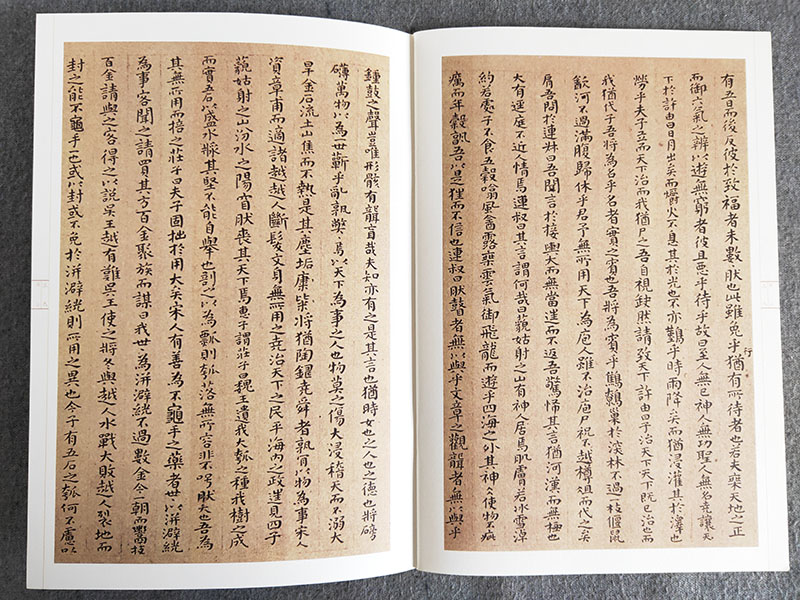 有五日而後反彼於致福者未數肰也此雖免乎行猶有所待者也若夫乗天地之正
而御六氣之辨以遊無窮者彼且惡乎待乎故曰至人無己神人無功聖人無名堯讓天
下於許由曰日月出矣而爝火不息其於光也不亦難乎時雨降矣而猶浸灌其於澤也
勞乎夫子立而天下治而我猶尸之吾自視缺然請致天下許由曰子治天下天下既已治也而
我猶代子吾將為名乎名者實之賓也吾將為賓乎鷦鷯巢於深林不過一枝偃鼠
飲河不過滿腹歸休乎君予無所用天下為庖人雖不治庖尸祝不越樽俎而代之矣
肩吾問於連叔曰吾聞言於接輿大而無當往而不返吾驚怖其言猶河漢而無極也
大有逕庭不近人情焉連叔曰其言謂何哉曰藐姑射之山有神人居焉肌膚若冰雪淖
約若處子不食五穀嗡風飲露乗雲氣御飛龍而遊乎四海之外其神使物不疵
癘而年穀孰吾以是狂而不信也連叔曰肰瞽者無以與乎文章之觀聾者無以與乎
鍾鼓之聲豈唯形骸有聾盲哉夫知亦有之是其言也猶時女也之人也之德也將磅
礴萬物以為一世蘄乎亂孰弊焉以天下為事之人也物莫之傷大浸稽天而不溺大
旱金石流土山焦而不熱是其塵垢粃糠將猶陶鑄堯舜者孰肯以物為事宋人
資章甫而適諸越越人斷髮文身無所用之堯治天下之民平海內之政往見四子
藐姑射之山汾水之陽窅肰喪其天下焉惠子謂莊子曰魏王遺我大瓠之種我樹之成
而實五石以盛水漿其堅不能自舉也剖之以為瓢則瓠落無所容非不呺肰大也吾為
其無所用而掊之莊子曰夫子固拙於用大矣宋人有善為不龜手之藥者世以洴澼絖
為事客聞之請買其方百金聚族而謀曰我世為洴澼絖不過數金今一朝而鬻技
百金請與之客得之以說吳王越有難吳王使之將冬與越人水戰大敗越人裂地而
封之能不龜手一也或以封或不免於洴澼絖則所用之異也今子有五石之瓠何不慮以